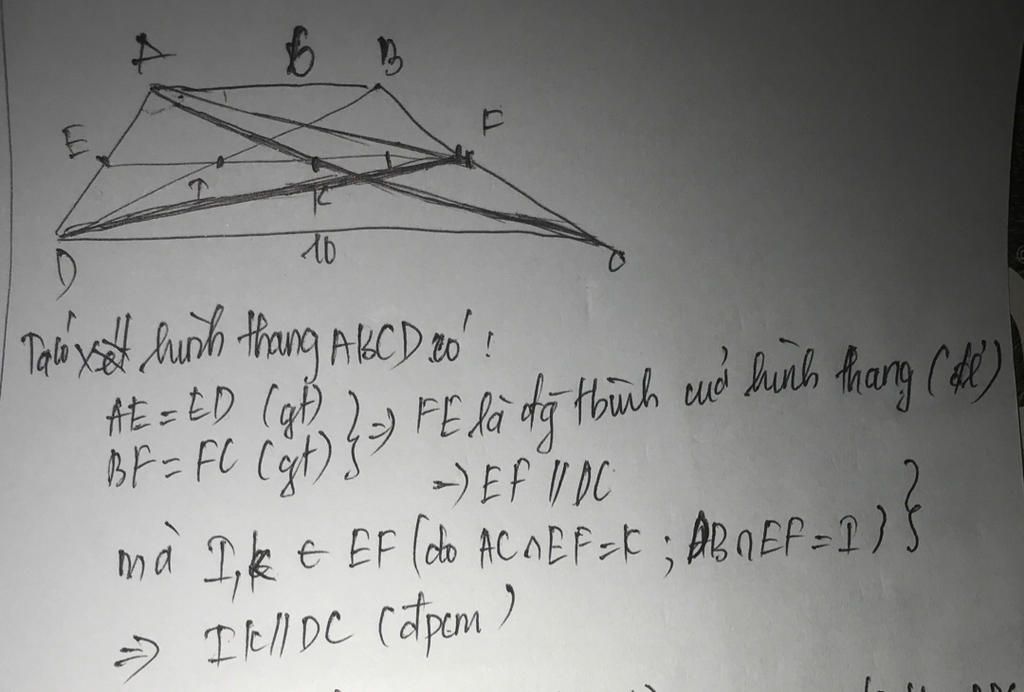 A 6 B
E F
I K
D 10 C
Ta có xét hình thang ABCD có :
AE = ED (gt)
BF = FC (gt) } => FE là đg tbình cuả hình thang (đl)
=> EF // DC
mà I, K ∈ EF (do AC ∩ EF = K ; DB ∩ EF = I) }
=> IK // DC (đpcm)